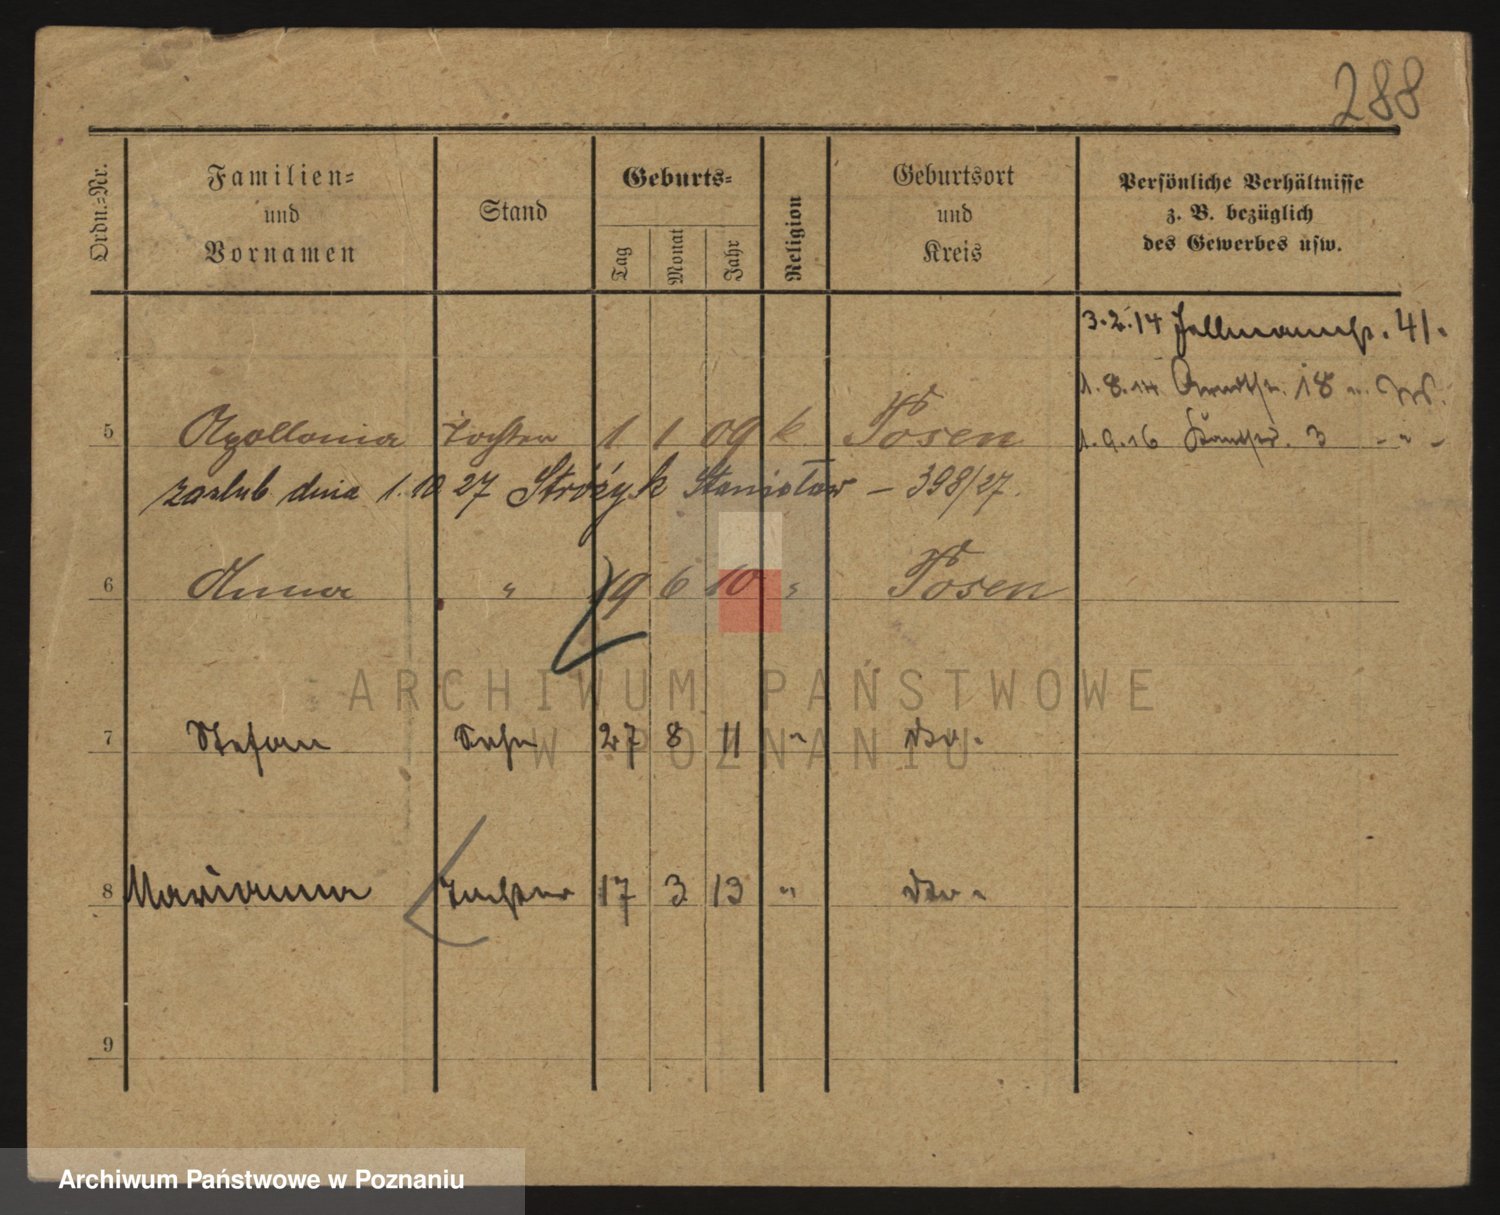 288
Ordn.-Nr.
Familien-
und
Vornamen
Stand
Geburts-
Tag
Monat
Jahr
Religion
Geburtsort
und
Kreis
Persönliche Verhältnisse
z. B. bezüglich
des Gewerbes usw.
3.2.14 41.
1.8.14 18
5 Apollonia Tochter 1 1 09 k Posen 1.9.16 3 - " -
zaślub dnia 1.10 27 Stróżyk Stanisław – 398/27.
6 Anna " 19 6 10 " Posen
ARCHIWUM PAŃSTWOWE
W POZNANIU
7 Stefan Sohn 27 8 11 " dto.
8 Marianna Tochter 17 3 13 " dto.
9
Archiwum Państwowe w Poznaniu